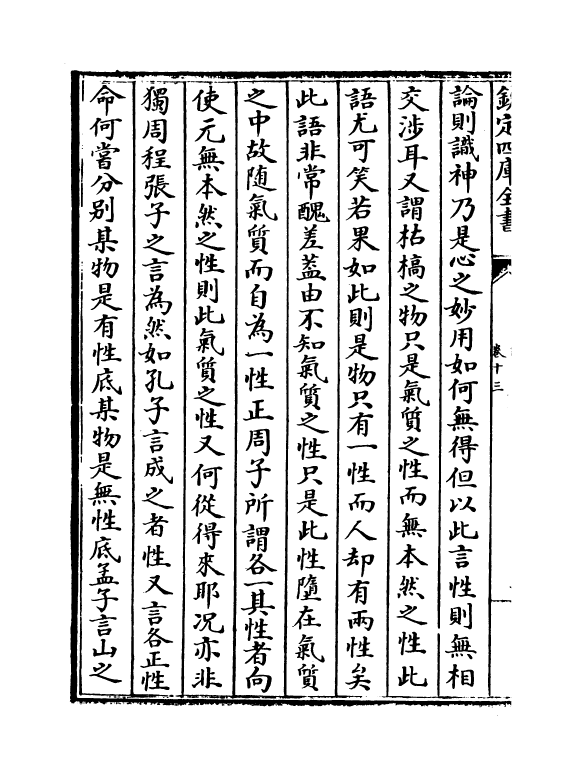 欽定四庫全書
卷十三
論則識神乃是心之妙用如何無得但以此言性則無相
交渉耳又謂枯槁之物只是氣質之性而無本然之性此
語尤可笑若果如此則是物只有一性而人却有兩性矣
此語非常醜差葢由不知氣質之性只是此性墮在氣質
之中故随氣質而自為一性正周子所謂各一其性者向
使元無本然之性則此氣質之性又何從得來耶况亦非
獨周程張子之言為然如孔子言成之者性又言各正性
命何嘗分别某物是有性底某物是無性底孟子言山之